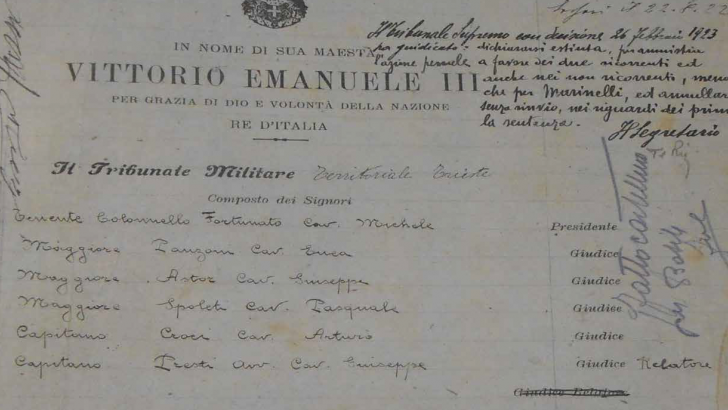 22.
Il Tribunale Supremo con decisione 26 Febbraio 1923
ha giudicato: dichiararsi estinta, per amnistia
l'azione penale a favore dei due ricorrenti ed
anche nei non ricorrenti, meno
che per Marinelli, ed annullar
senza rinvio, nei riguardi dei primi
la sentenza.
Il Segretario
IN NOME DI SUA MAESTA
VITTORIO EMANUELE III
PER GRAZIA DI DIO E VOLONTÀ DELLA NAZIONE
RE D'ITALIA
Il Tribunale Militare Territoriale Trieste
Composto dei Signori
Tenente Colonnello Fortunato Cav. Michele Presidente
Maggiore Cav. Giudice
Maggiore Astor Cav. Giuseppe Giudice
Maggiore Spoleti Cav. Pasquale Giudice
Capitano Croci Cav. Arturo Giudice
Capitano Presti Avv. Cav. Giuseppe Giudice Relatore
Giudice Relatore
Fatto cartellino